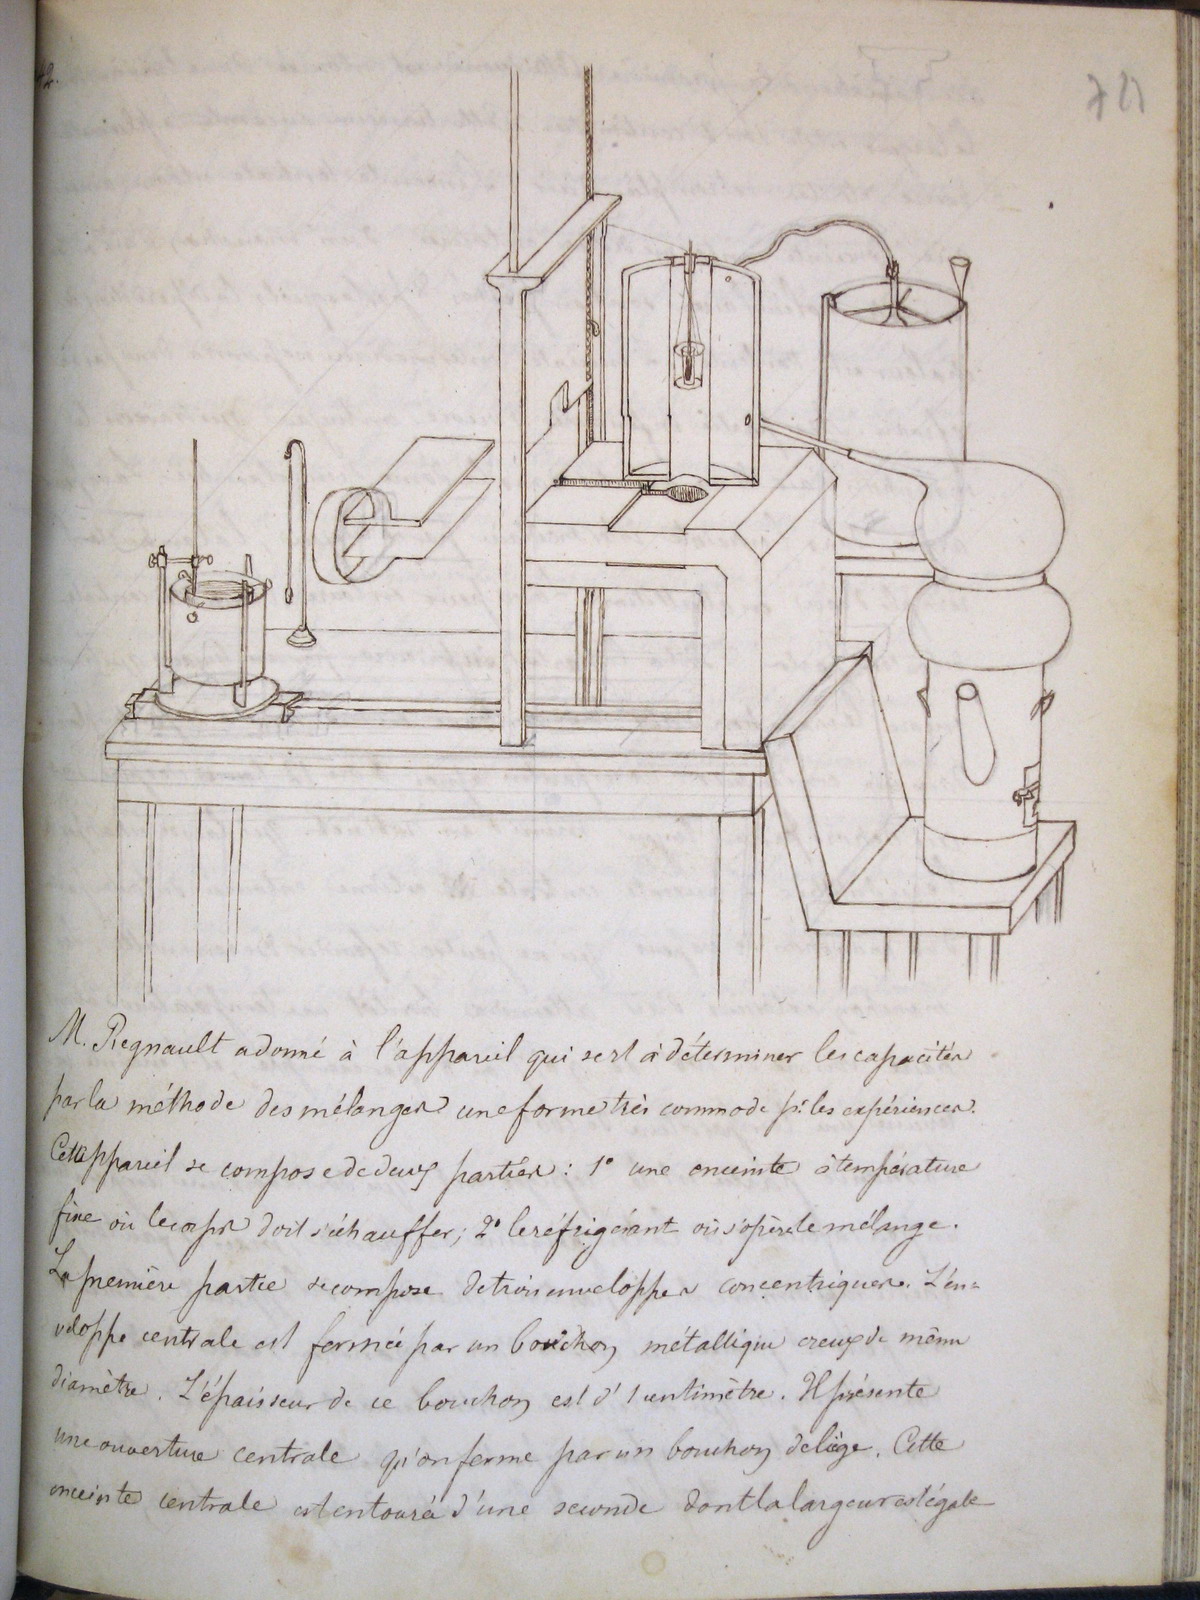 M. Regnault a donné à l'appareil qui sert à déterminer les capacités
par la méthode des mélanges une forme très commode pr les expériences.
Cet appareil se compose de deux parties : 1° une enceinte à température
fixe où le corps doit s'échauffer ; 2° le réfrigérant où s'opère le mélange.
La première partie se compose de trois enveloppes concentriques. L'en=
veloppe centrale est fermée par un bouchon métallique creux de même
diamètre. L'épaisseur de ce bouchon est d'1 centimètre. Il présente
une ouverture centrale qu'on ferme par un bouchon de liège. Cette
enceinte centrale est entourée d'une seconde dont la largeur est égale